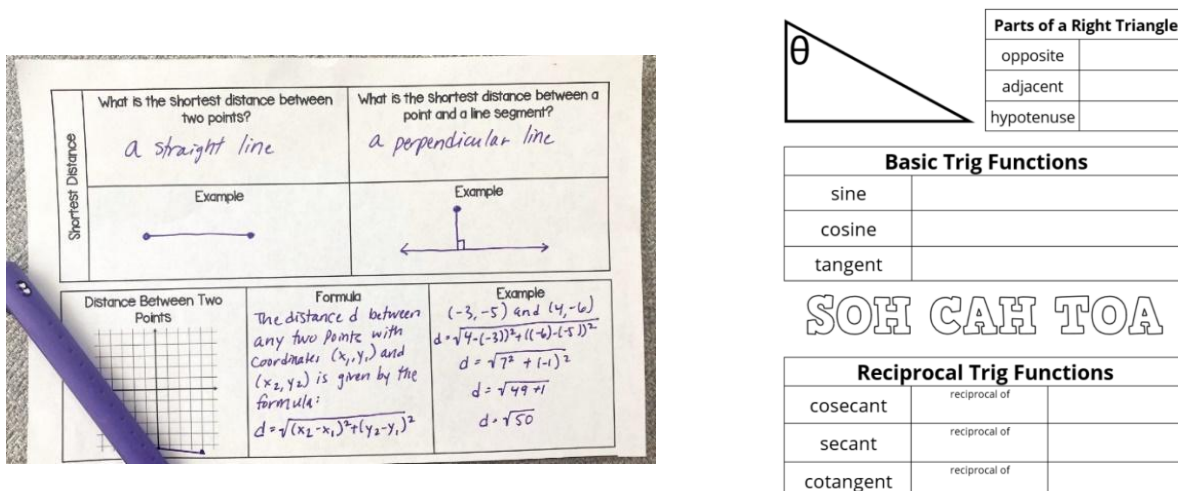 Shortest Distance
What is the shortest distance between
two points?
a straight line
Example
What is the shortest distance between a
point and a line segment?
a perpendicular line
Example
Distance Between Two
Points
Formula
The distance d between
any two points with
coordinates (x₁,y₁) and
(x₂,y₂) is given by the
formula:
d=√(x₂-x₁)²+(y₂-y₁)²
Example
(-3,-5) and (4,-6)
d=√4-(-3))²+((-6)-(-5))²
d = √7² + (-1)²
d = √49+1
d = √50
θ
Parts of a Right Triangle
opposite
adjacent
hypotenuse
Basic Trig Functions
sine
cosine
tangent
SOH CAH TOA
Reciprocal Trig Functions
cosecant
reciprocal of
secant
reciprocal of
cotangent
reciprocal of